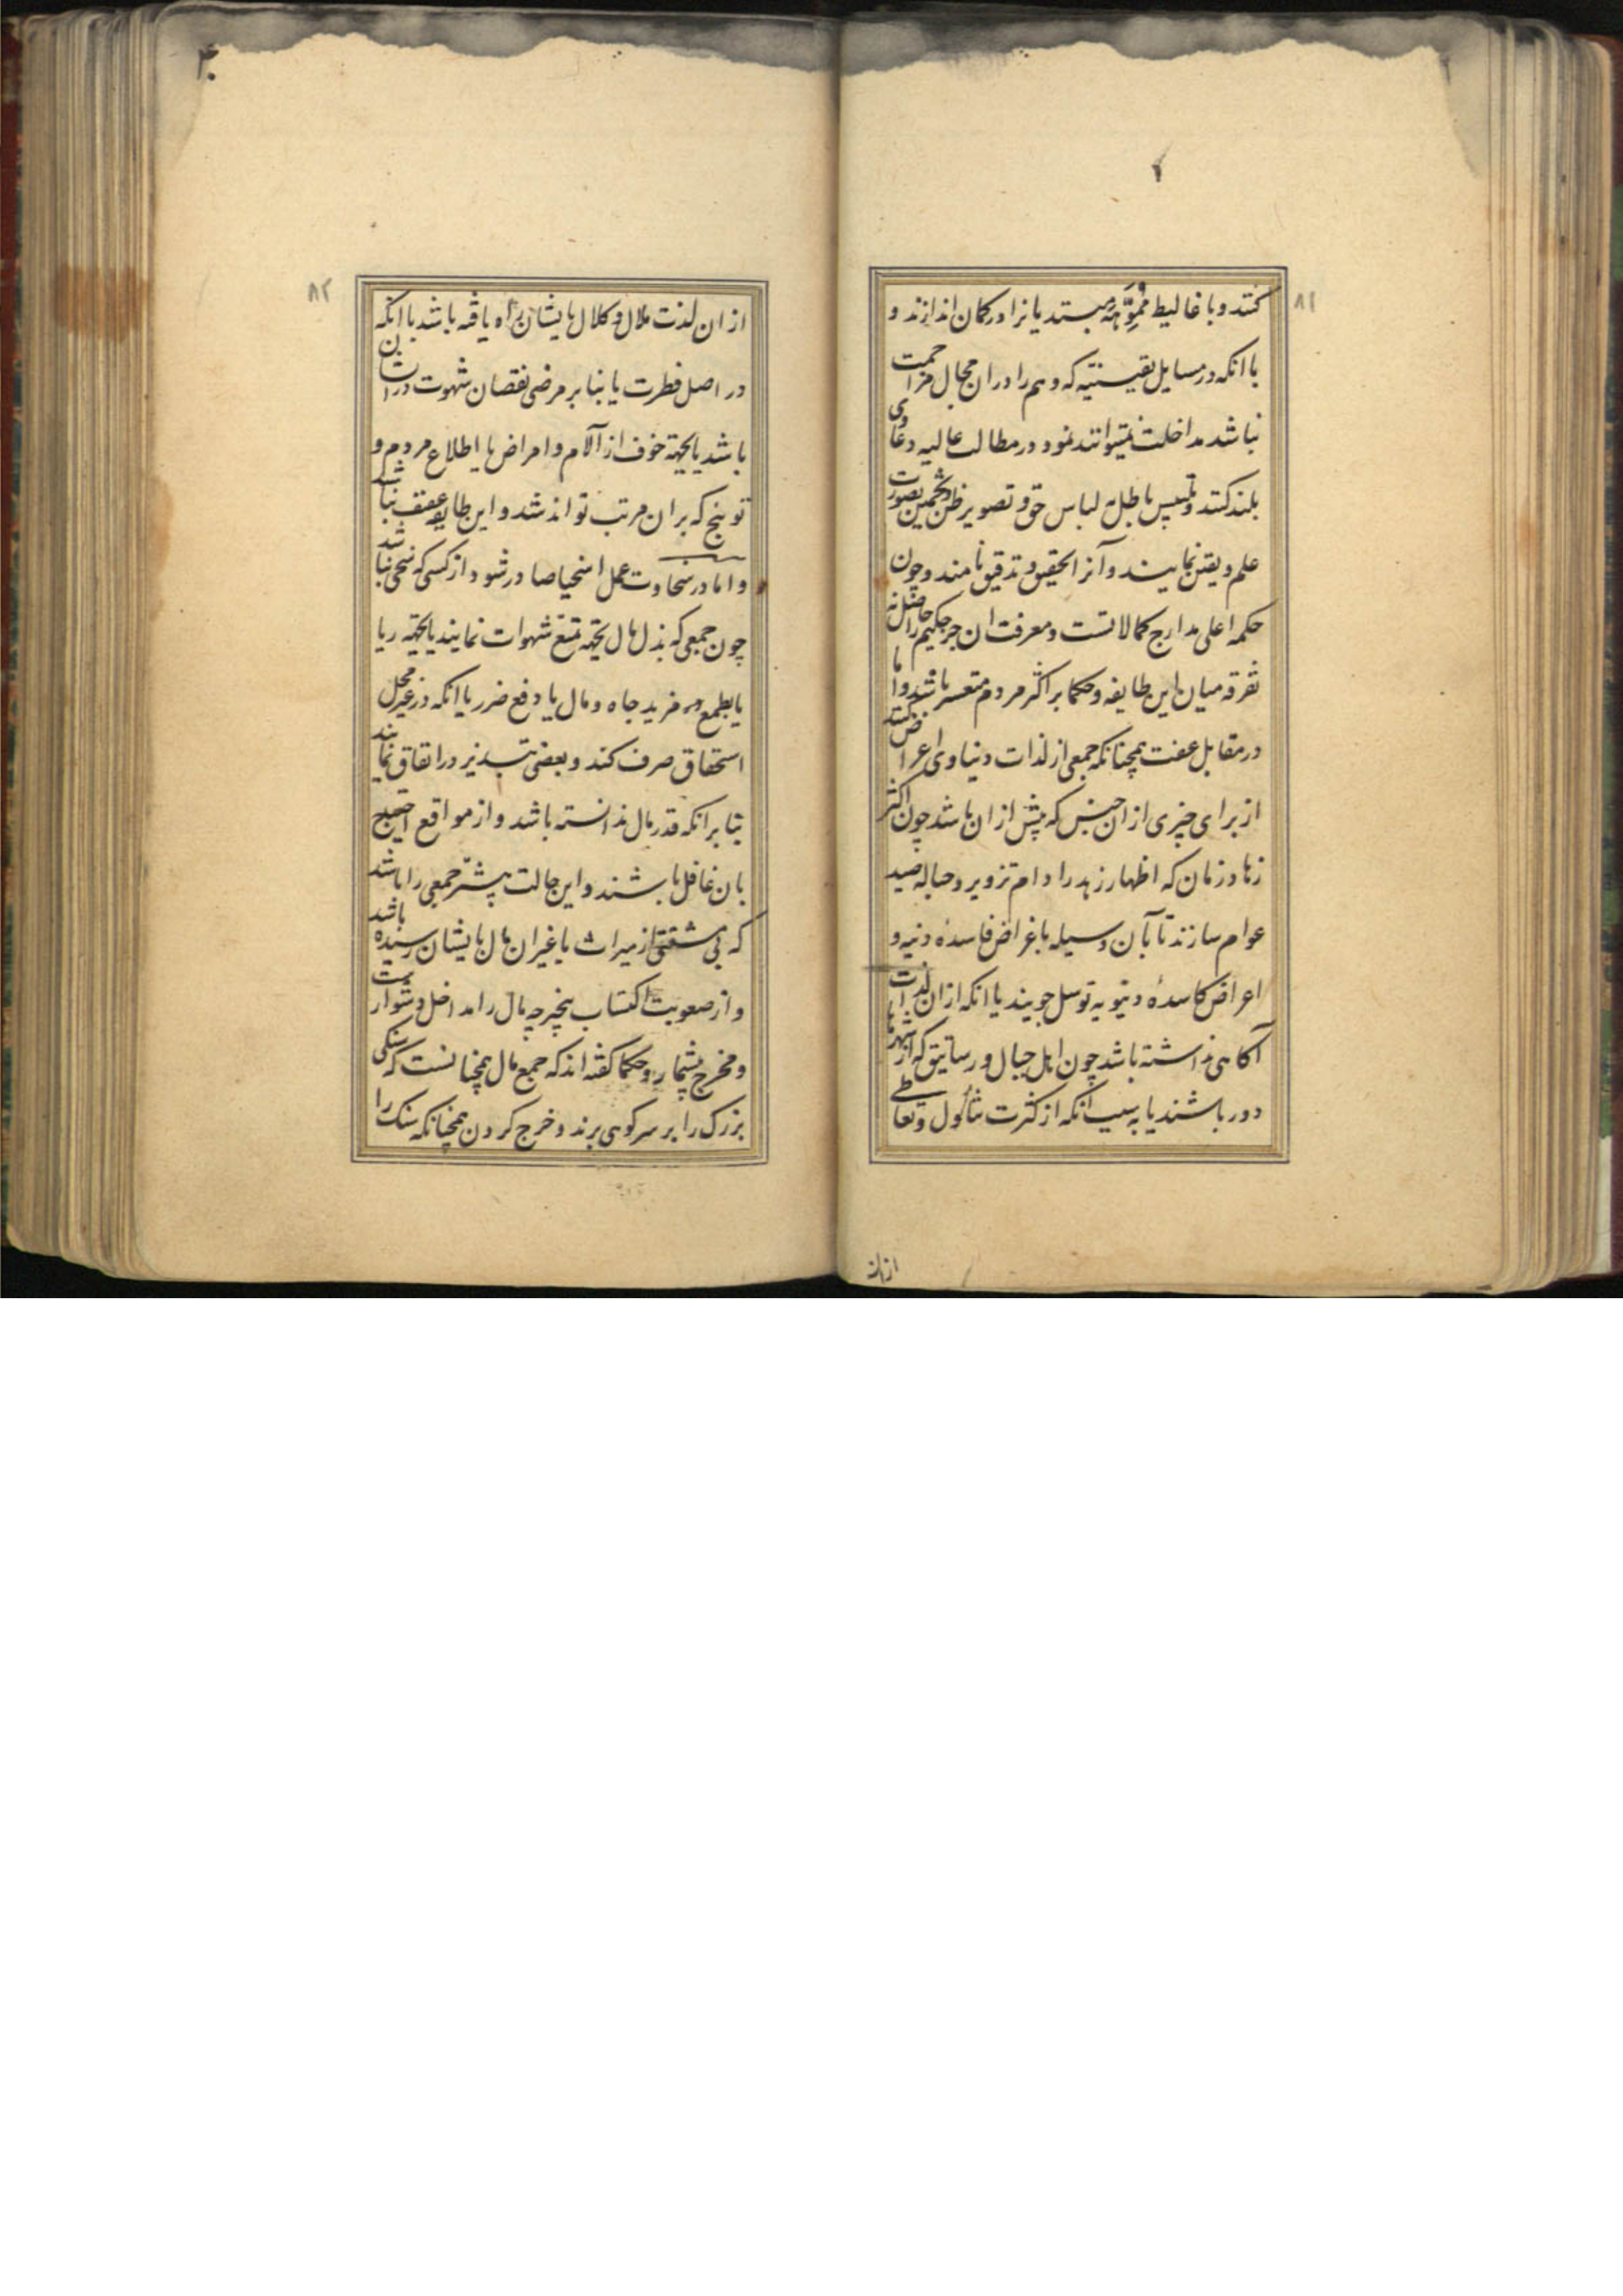 ۸۱
کنند و باغالیط مموّهه مبتدیانرا در کمان اندازند و
با انکه در مسایل یقینیه که وهم را دران مجال مزاحمت
نباشد مداخلت نمیتوانند نمود در مطالب عالیه دعاوی
بلند کنند و تلبیس باطل بلباس حق و تصویر ظن و تخمین بصورت
علم و یقین نمایند و آنرا تحقیق و تدقیق نامند و چون
حکمه اعلی مدارج کمالاتست و معرفت ان جز حکیم را حاصل نه
تفرقه میان این طایفه و حکما بر اکثر مردم متعسر باشد و اما
در مقابل عفت همچنانکه جمعی از لذات دنیاوی اعراض کنند
از برای چیزی از ان جنس که بیش از ان باشد چون اکثر
زهاد زمان که اظهار زهد را دام تزویر و حباله صید
عوام سازند تا بآن وسیله باغراض فاسدهٔ دنیه و
اعراض کاسدهٔ دنیویه توسل جویند یا انکه از ان لذات
آکاهی نداشته باشد چون اهل جبال و رساتیق که از شهرها
دور باشند یا به سبب آنکه از کثرت تناول و تعاطی
ازان
۸۲
از ان لذت ملال و کلال بایشان راه یافته باشد با انکه
در اصل فطرت یا بنابر مرضی نقصان شهوت در ایشان
باشد یا بجهة خوف از آلام و امراض یا اطلاع مردم و
توبیخ که بران مرتب تواند شد و این طایفه عفیف نباشند
و اما در سخاوت عمل اسخیا صادر شود از کسی که سخی نباشد
چون جمعی که بذل مال بجهة تمتع شهوات نمایند یا بجهة ریا
یا بطمع مزید جاه و مال یا دفع ضرر یا انکه در غیر محل
استحقاق صرف کند و بعضی تبذیر در انفاق نمایند
بنا بر انکه قدر مال ندانسته باشد و از مواقع احتیاج
بان غافل باشند و این حالت بیشتر جمعی را باشد
که بی مشقتی از میراث یا غیر ان مال بایشان رسیده باشد
و از صعوبت اکتساب بیخبر چه مال را مداخل دشوارست
و مخرج بیشمار و حکما کفته اند که جمع مال همچنانست که سنکی
بزرک را بر سر کوهی برند و خرج کردن همچنانکه سنک را